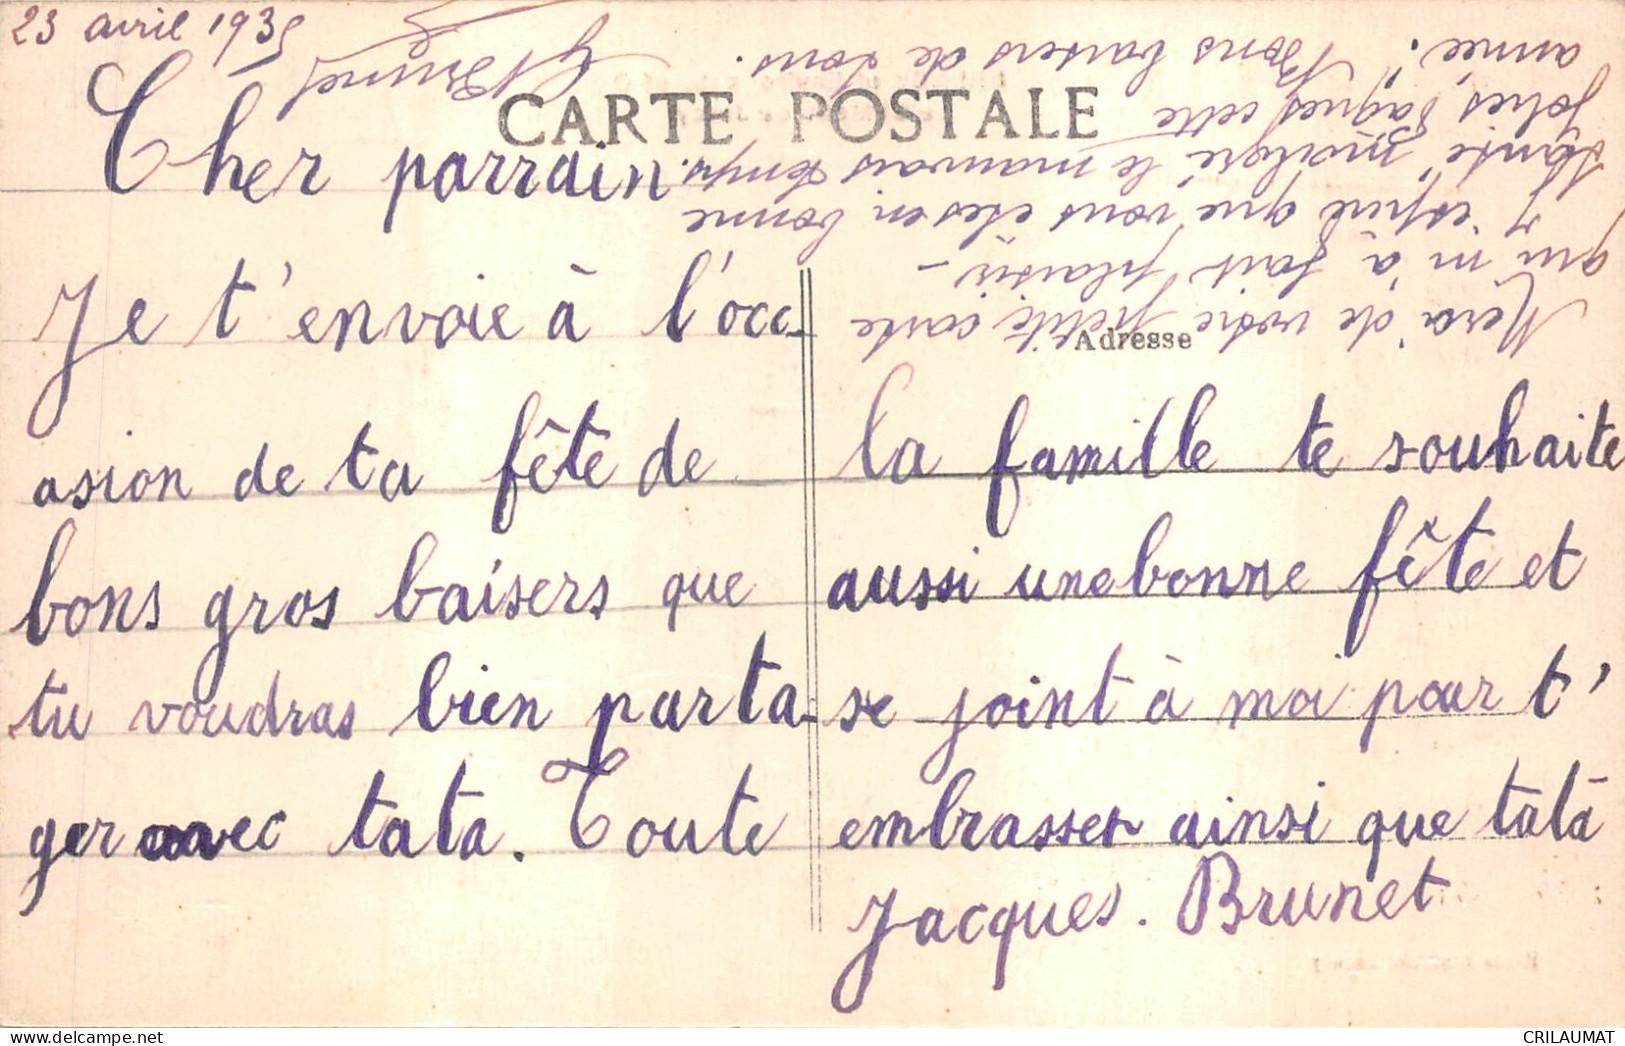 23 avril 1935
CARTE POSTALE
Cher parrain.
Je t'envoie à l'occ-
asion de ta fête de
bons gros baisers que
tu voudras bien parta-
ger avec tata. Toute
Adresse
la famille te souhaite
aussi une bonne fête et
se joint à moi pour t'
embrasser ainsi que tata
Jacques. Brunet
Merci de votre petite carte
qui m'a fait plaisir -
J'espère que vous êtes en bonne
santé malgré le mauvais temps.
Jolies Pâques cette
année. Bons baisers de tous.
Brunet
CRILAUMAT